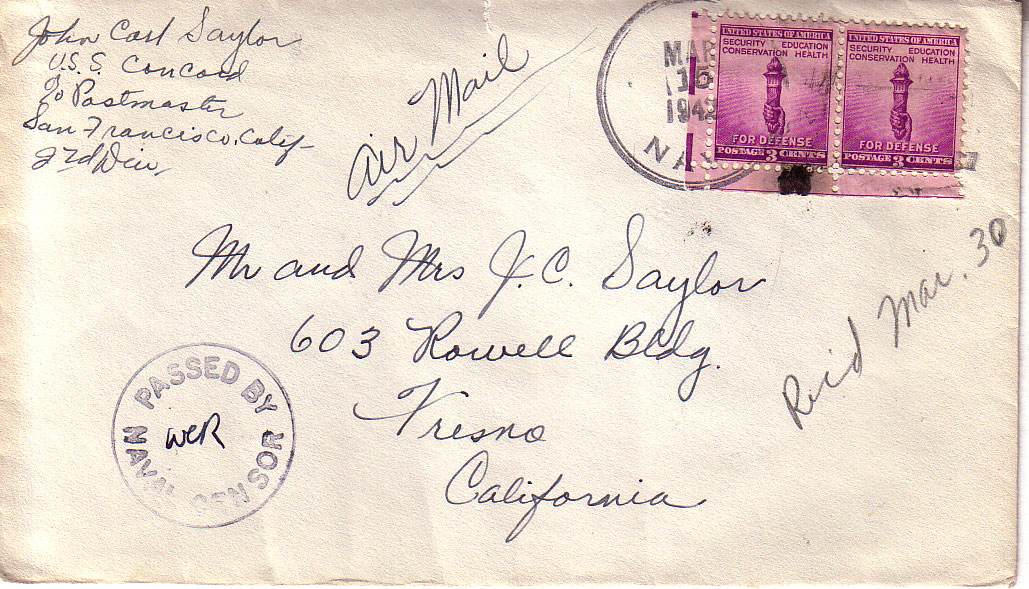 John Carl Saylor
U.S.S. Concord
c/o Postmaster
San Francisco, Calif
2nd Div.
Air Mail
MAR
10
1942
NA
UNITED STATES OF AMERICA
SECURITY EDUCATION
CONSERVATION HEALTH
FOR DEFENSE
POSTAGE 3 CENTS
UNITED STATES OF AMERICA
SECURITY EDUCATION
CONSERVATION HEALTH
FOR DEFENSE
POSTAGE 3 CENTS
Mr and Mrs J. C. Saylor
603 Rowell Bldg.
Fresno
California
Rec'd Mar. 30
PASSED BY
WCR
NAVAL CENSOR